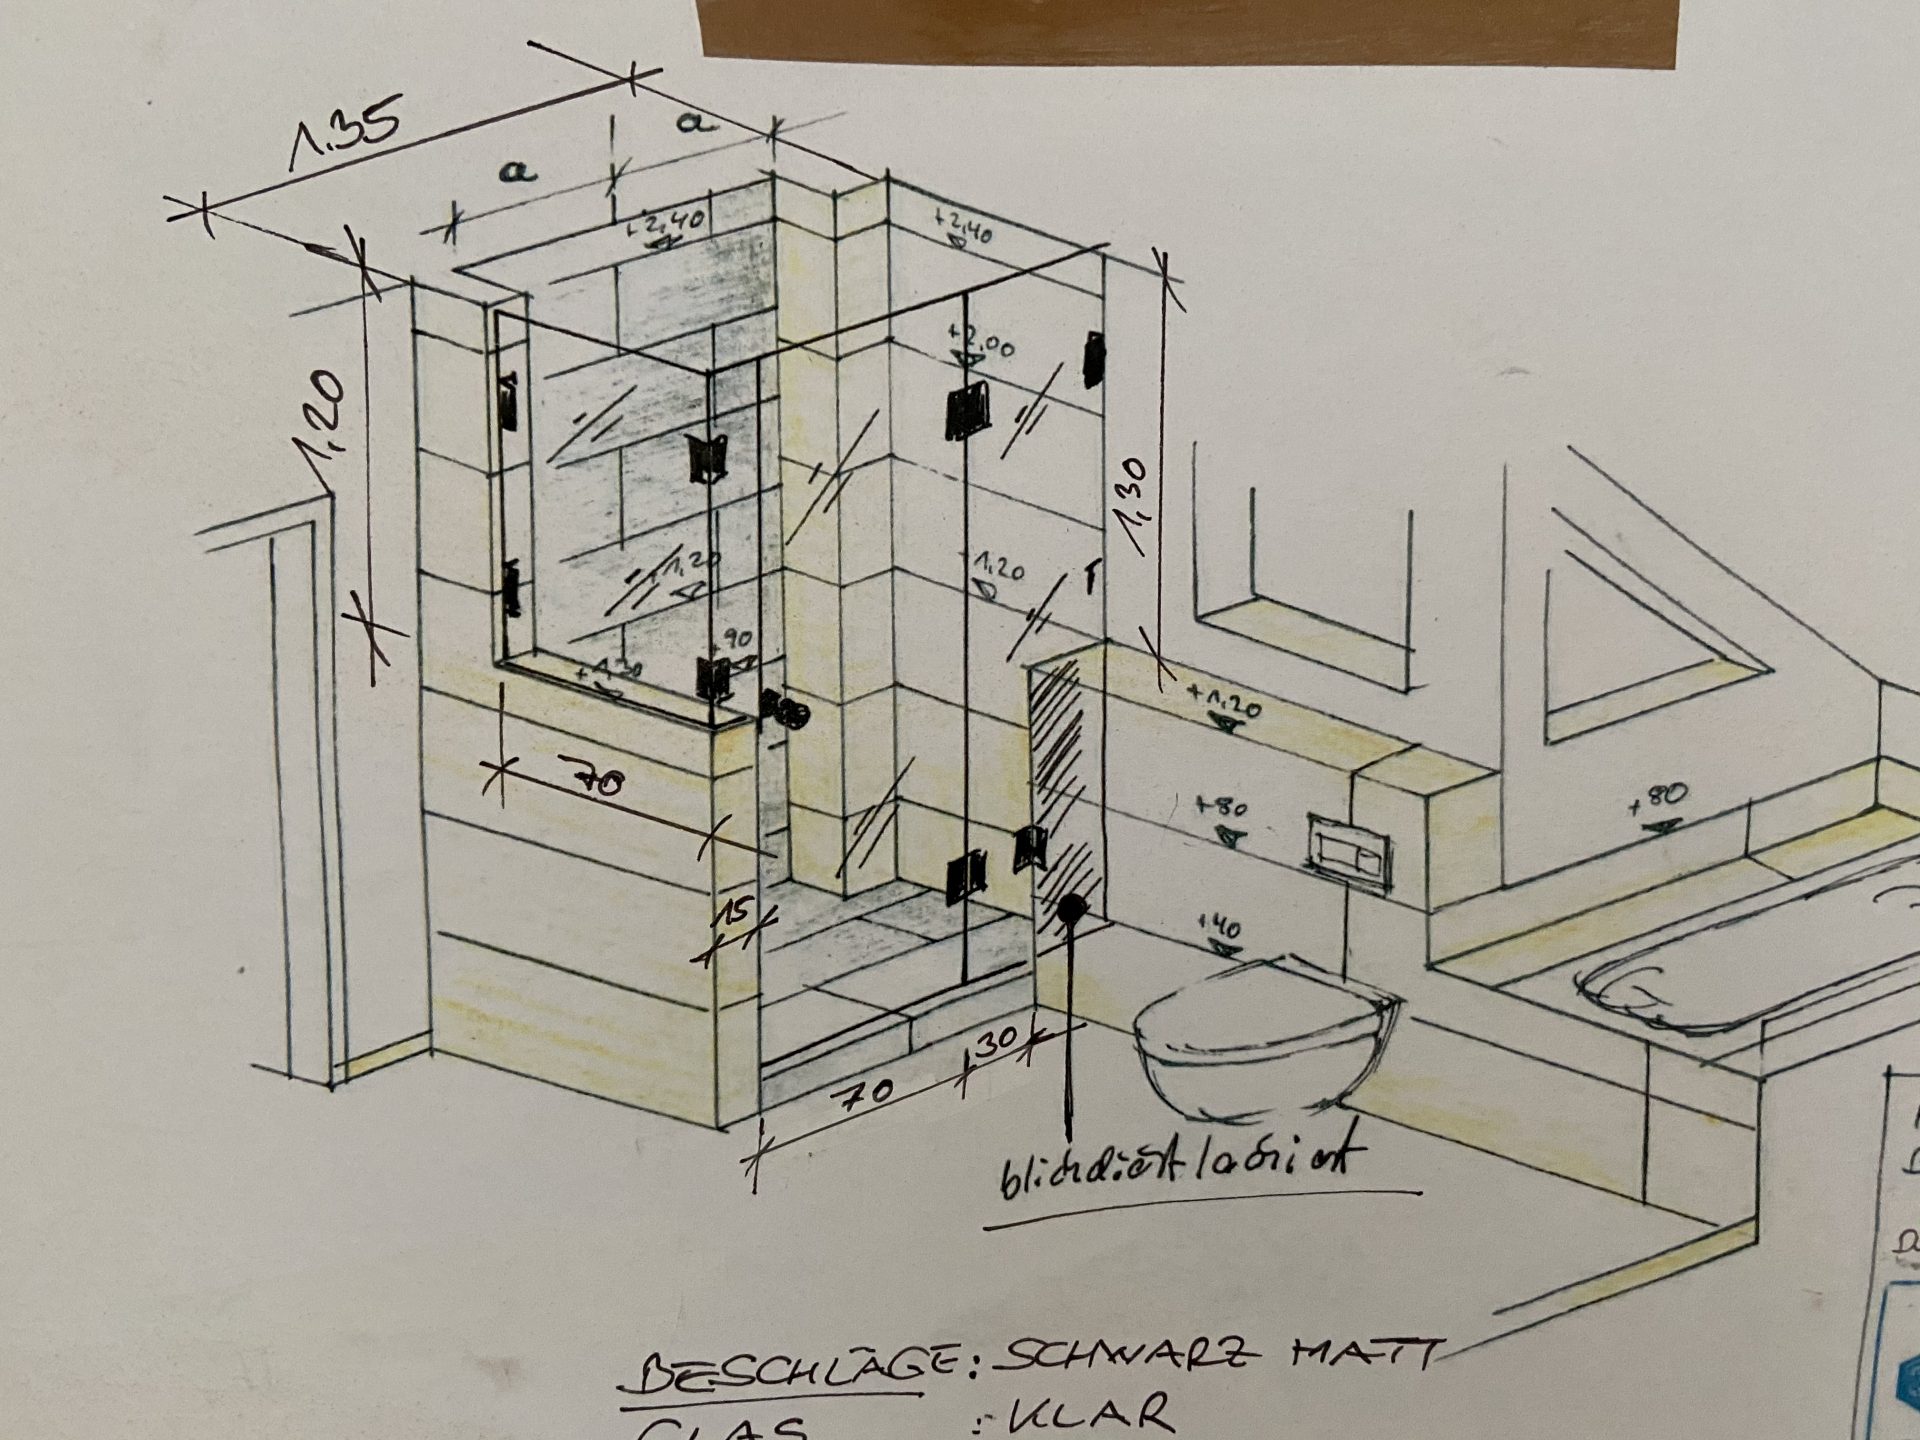 1.35
a
a
+2,40
+2,40
1,20
+2,00
1,30
1,20
1,20
90
+1,20
+1,20
70
+80
+80
15
+40
30
70
blickdicht lackiert
BESCHLÄGE: SCHWARZ MATT
GLAS : KLAR